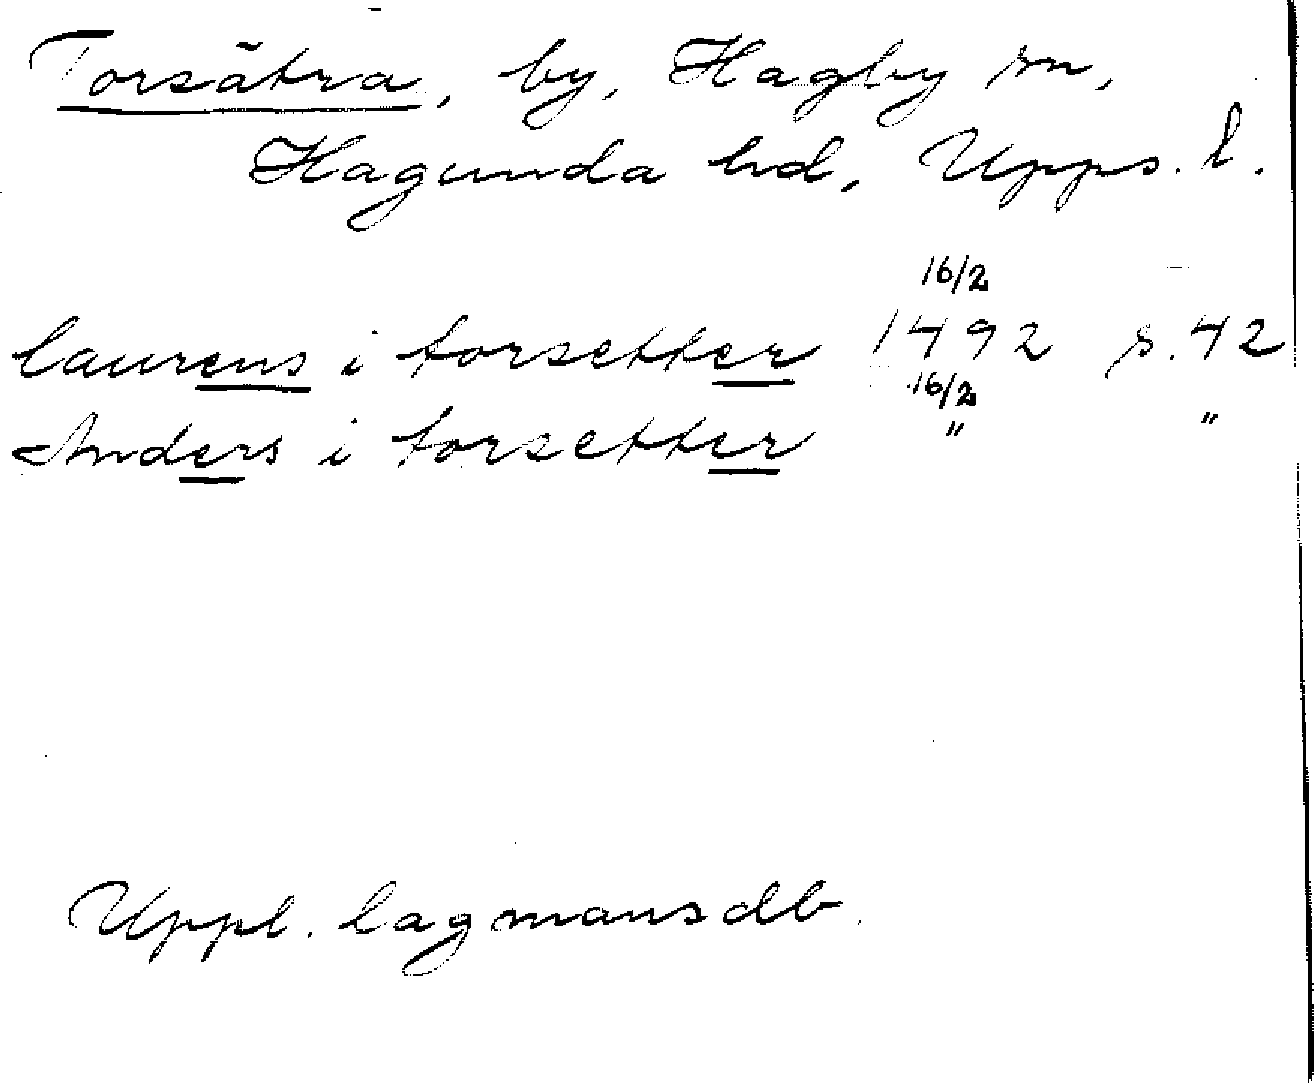 Torsätra, by, Hagby sn,
Hagunda hd, Upps. l.
16/2
laurens i torsetter 1492 s. 42
16/2
Anders i torsetter " "
Uppl. lagmansdb.